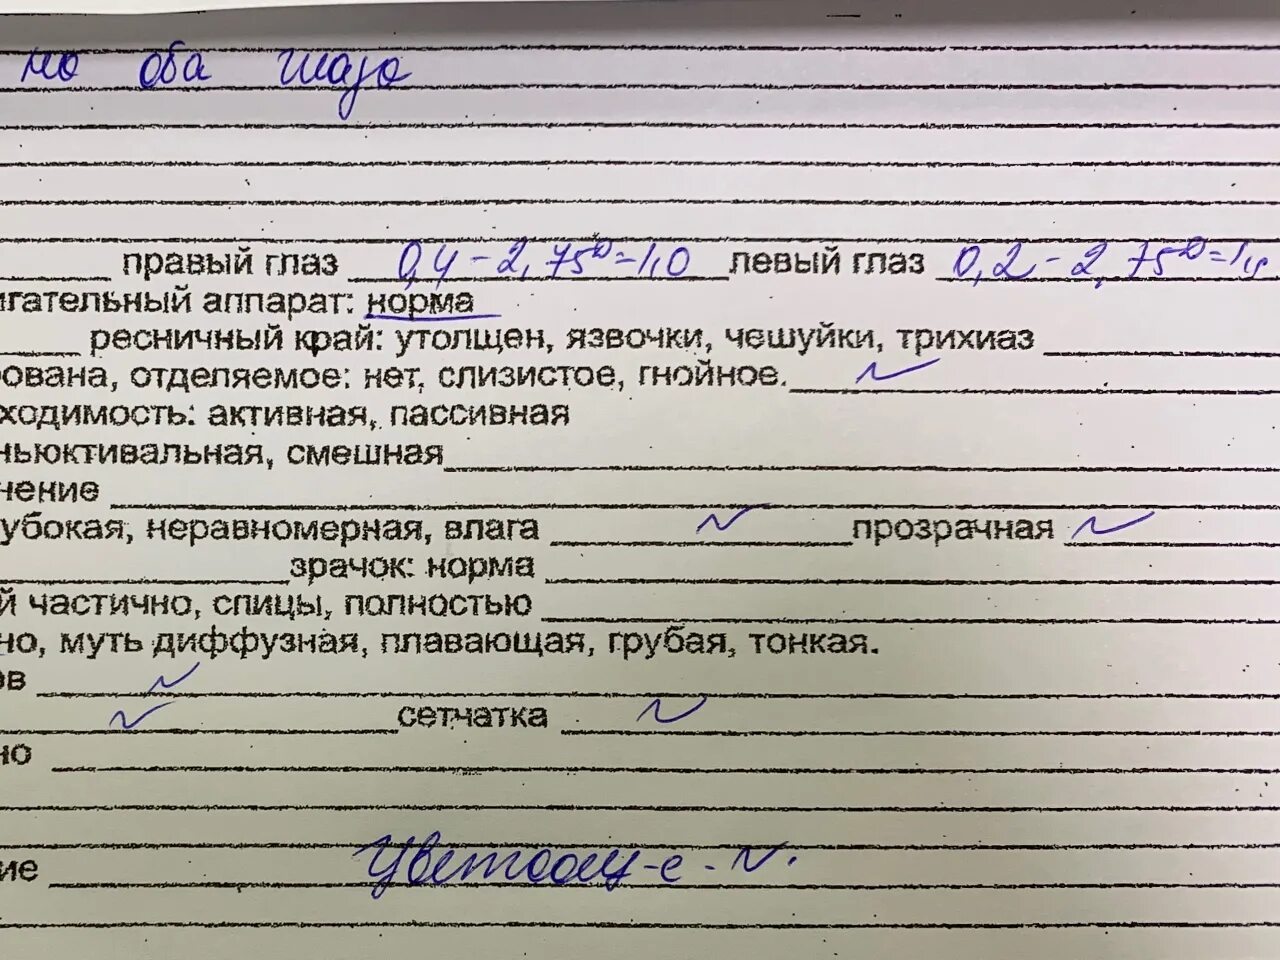 но оба глаза
правый глаз 0,4 – 2,75D = 1,0 левый глаз 0,2 – 2,75D = 1,
игательный аппарат: норма
ресничный край: утолщен, язвочки, чешуйки, трихиаз
ована, отделяемое: нет, слизистое, гнойное. N
ходимость: активная, пассивная
ньюктивальная, смешная
нение
убокая, неравномерная, влага N прозрачная N
зрачок: норма
й частично, спицы, полностью
но, муть диффузная, плавающая, грубая, тонкая.
ов N
N сетчатка N
но
ие Цветоощ-е - N.